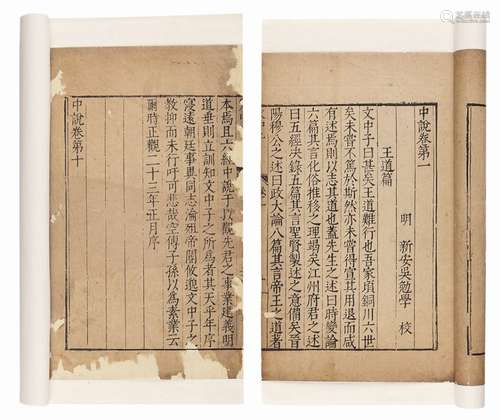 中說卷第一
王道篇
明 新安吳勉學 校
文中子曰甚矣王道難行也吾家頃銅川六世
矣未嘗不篤於斯然亦未嘗得宣其用退而咸
有述焉則以志其道也蓋先生之述曰時變論
六篇其言化俗推移之理竭矣江州府君之述
曰五經决錄五篇其言聖賢製述之意備矣晉
陽穆公之述曰政大論八篇其言帝王之道者
本焉且六經中說于以觀先君之事業建義明
道垂則立訓知文中子之所為者其天乎年序
寖遠朝廷事異同志淪殂帝閽攸邈文中子之
教抑而未行吁可悲哉空傳子孫以為素業云
爾時正觀二十三年正月序
中說卷第十